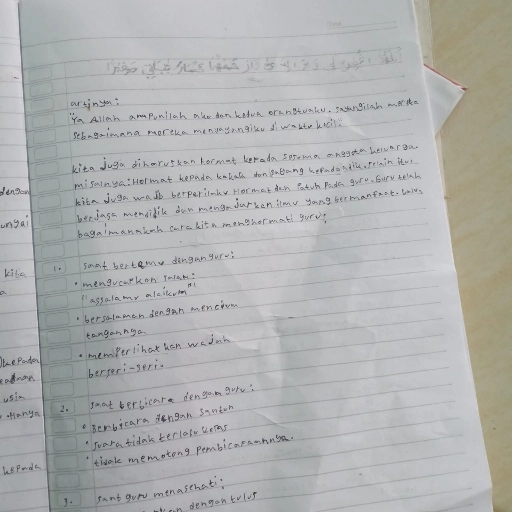 artinya:
"Ya Allah ampunilah aku dan kedua orangtuaku, sayangilah mereka
sebagaimana mereka menyayangiku di waktu kecil"
kita juga diharuskan hormat kepada sesama anggota keluarga
misalnya: Hormat kepada kakak dan sayang kepada adik. selain itu
kita juga wajib berperilaku Hormat dan patuh pada guru. Guru telah
berjasa mendidik dan mengajarkan ilmu yang bermanfaat.
bagaimanakah cara kita menghormati guru;
1. saat bertemu dengan guru:
• mengucapkan salam:
"assalamu alaikum"
• bersalaman dengan mencium
tangannya
• memperlihatkan wajah
berseri-seri.
2. saat berbicara dengan guru:
• Berbicara dengan santun
• suara tidak terlalu keras
• tidak memotong pembicaraannya.
3. saat guru menasehati:
dengan tulus
dengan
kita
kepada
usia
kepada